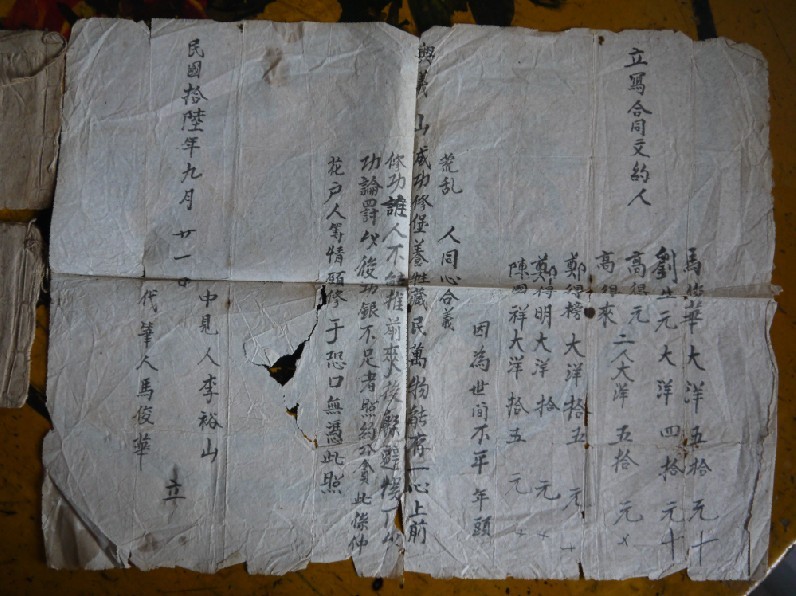 立寫合同文約人
馬俊華大洋五拾元十
劉生元大洋四拾元十
高得元
高得來 二人大洋五拾元×
鄭得榜大洋拾五元十
鄭榜明大洋拾元×
陳祥大洋拾五元×
因為世间不平年頭
荒乱 人同心合義
興義山成功修堡養性藏民萬物能有一心上前
修功誰人不能推前夾後躲避
功論罰以後功銀不足者照約公貪此係仲
花户人等情願修于恐口無憑此照
中見人李裕山
代筆人馬俊華
民國拾陸年九月廿一日 立